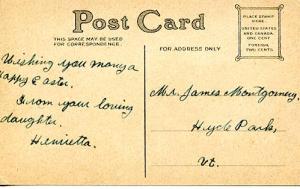 Post Card
THIS SPACE MAY BE USED
FOR CORRESPONDENCE.
FOR ADDRESS ONLY
PLACE STAMP
HERE
UNITED STATES
AND CANADA
ONE CENT
FOREIGN
TWO CENTS
Wishing you many a
Happy Easter.
From your loving
daughter.
Henrietta.
Mr. James Montgomery,
Hyde Park,
Vt.